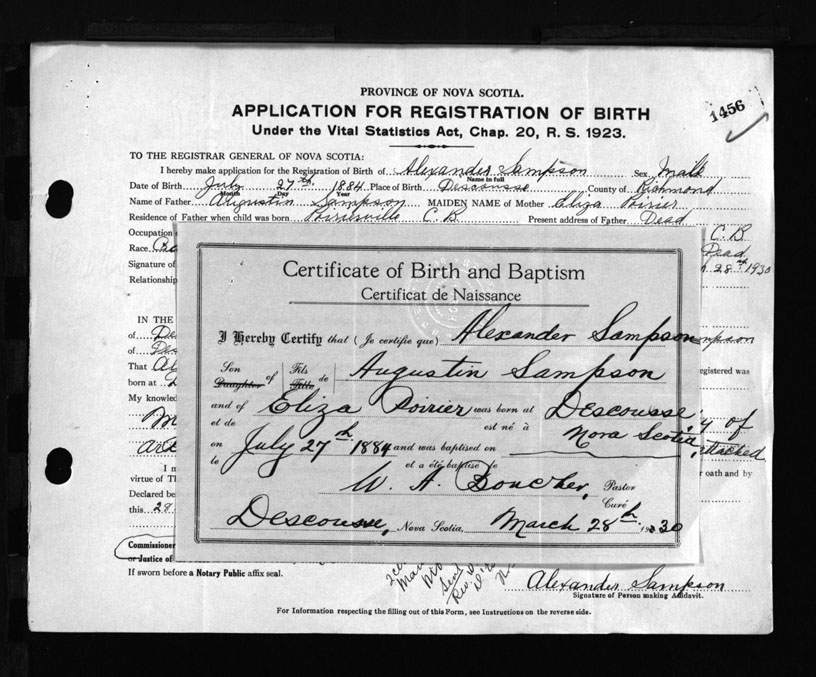 PROVINCE OF NOVA SCOTIA.
1456
APPLICATION FOR REGISTRATION OF BIRTH
Under the Vital Statistics Act, Chap. 20, R. S. 1923.
TO THE REGISTRAR GENERAL OF NOVA SCOTIA:
I hereby make application for the Registration of Birth of Alexander Sampson Sex Male
Name in full
Date of Birth July 27th 1884 Place of Birth Descousse County of Richmond
Day Year
Name of Father Augustin Sampson MAIDEN NAME of Mother Eliza Poirier
Residence of Father when child was born Poirierville C. B Present address of Father Dead
Occupation C. B
Race Dead
Signature of 28th 1930
Relationship
Certificate of Birth and Baptism
Certificat de Naissance
I Hereby Certify that (Je certifie que) Alexander Sampson
Son Daughter of Fils Fille de Augustin Sampson
and of Eliza Poirier was born at Descousse,
et de est né à Nova Scotia,
on July 27th 1884 and was baptised on
le et a été baptise le
W. A. Boucher, Pastor
Curé
Descousse, Nova Scotia, March 28th 1930
IN THE
of
of
That Al registered was
born at D
My knowled y of
attached
I m r oath and by
virtue of Th
Declared be
this 28
Commissioner
or Justice of
If sworn before a Notary Public affix seal.
Alexander Sampson
Signature of Person making Affidavit.
For Information respecting the filling out of this Form, see Instructions on the reverse side.